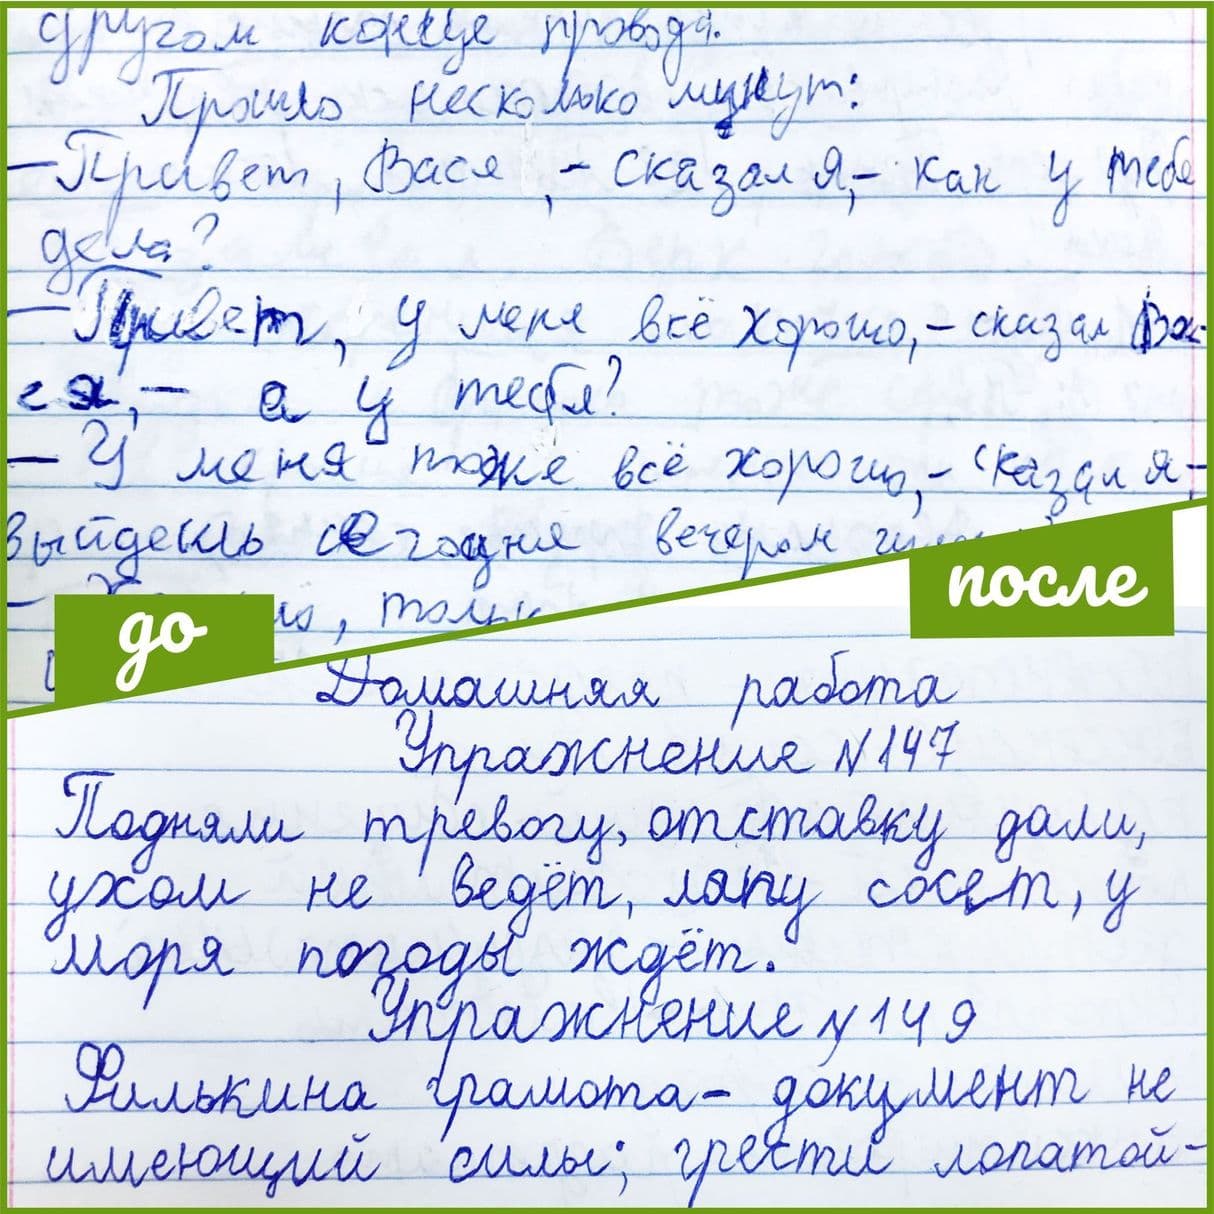 другом конце провода.
Прошло несколько минут:
– Привет, Вася, – сказал я, – как у тебя
дела?
– Привет, у меня всё хорошо, – сказал Ва-
ся, – а у тебя?
– У меня тоже всё хорошо, – сказал я, –
выйдешь сегодня вечером
после
до
Домашняя работа
Упражнение №147
Подняли тревогу, отставку дали,
ухом не ведёт, лапу сосет, у
моря погоды ждёт.
Упражнение №149
Филькина грамота – документ не
имеющий силы; грести лопатой –